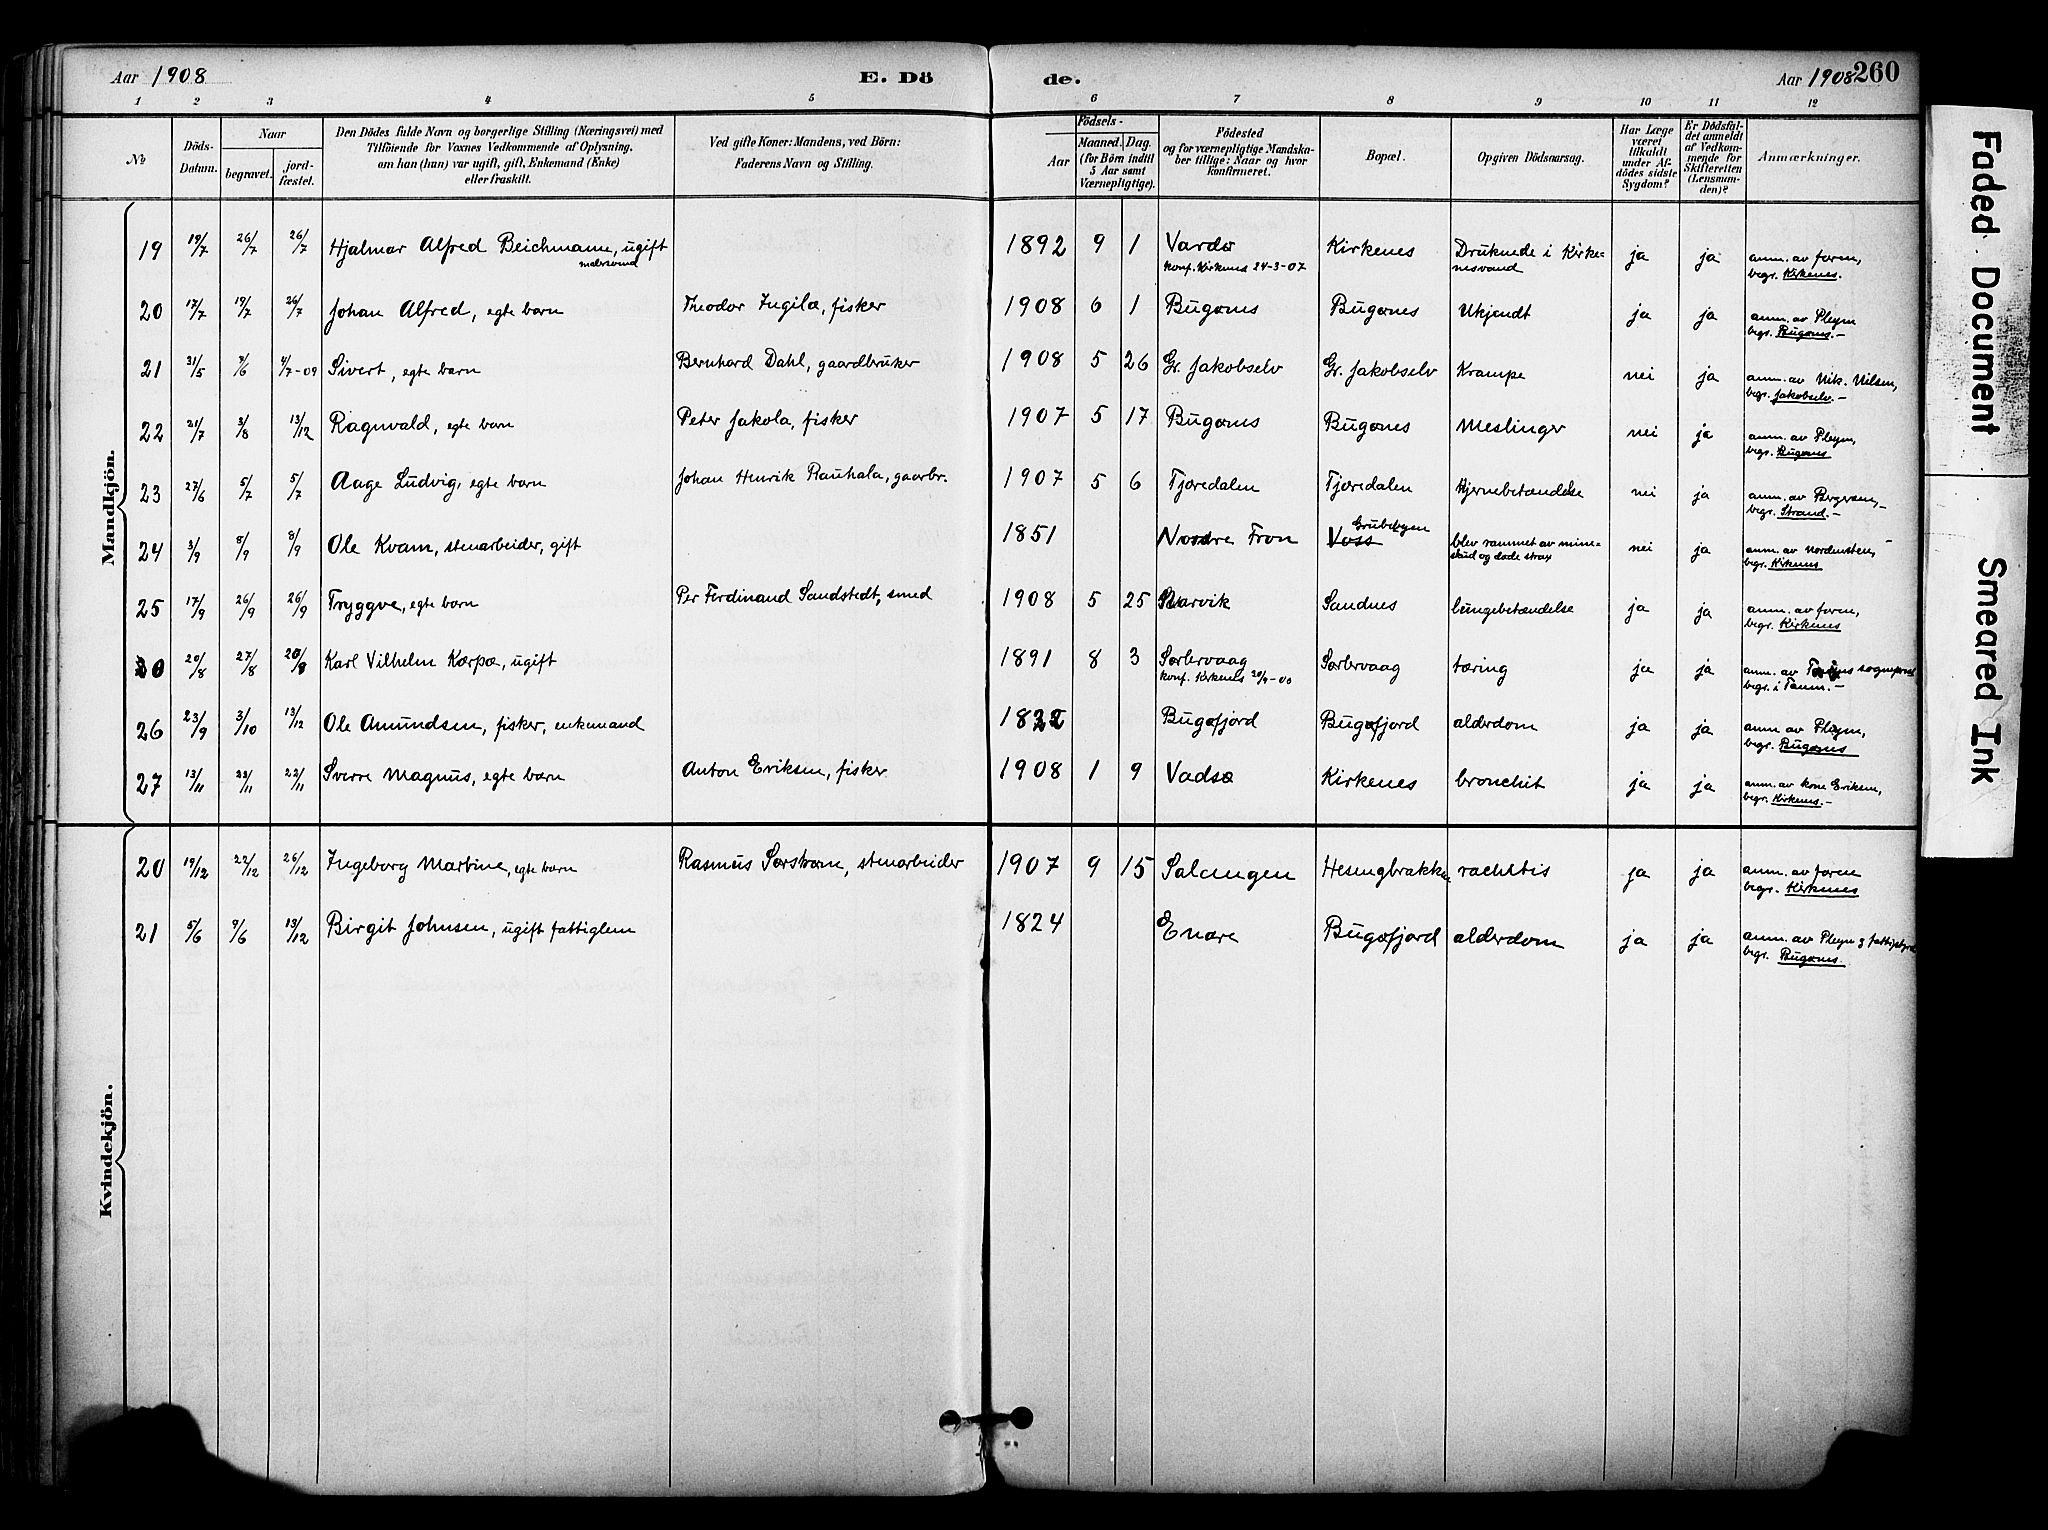 Aar 1908 E. Dö de. Aar 1908 260
1 2 3 4 5 6 7 8 9 10 11 12
No
Döds-
Datum.
Naar
begravet.
jord-
fæstet.
Den Dödes fulde Navn og borgerlige Stilling (Næringsvei) med
Tilföiende for Voxnes Vedkommende af Oplysning,
om han (hun) var ugift, gift, Enkemand (Enke)
eller fraskilt.
Ved gifte Koner: Mandens, ved Börn:
Faderens Navn og Stilling.
Födsels-
Aar
Maaned. Dag.
(for Börn indtil
5 Aar samt
Værnepligtige).
Födested
og for værnepligtige Mandska-
ber tillige: Naar og hvor
konfirmeret.
Bopæl.
Opgiven Dödsaarsag.
Har Læge
været
tilkaldt
under Af-
dödes sidste
Sygdom?
Er Dödsfal-
det anmeldt
af Vedkom-
mende for
Skifteretten
(Lensman-
den)?
Anmærkninger.
Mandkjön.
19 19/7 26/7 26/7 Hjalmar Alfred Beichmann, ugift 1892 9 1 Vardø Kirkenes Druknede i Kirke- ja ja anm. av faren,
konf. Kirkenes 24-3-07 nesvand begr. Kirkenes.
20 17/7 19/7 26/7 Johan Alfred, egte barn Theodor Ingilæ, fisker 1908 6 1 Bugønes Bugønes Ukjendt ja ja anm. av Pleym
begr. Bugønes.-
21 31/5 /6 4/7-09 Sivert, egte barn Bernhard Dahl, gaardbruker 1908 5 26 Gr. Jakobselv Gr. Jakobselv Krampe nei ja anm. av Nik. Nilsen,
begr. Jakobselv.-
22 21/7 3/8 13/12 Ragnvald, egte barn Peter Jakola, fisker 1907 5 17 Bugønes Bugønes Meslinger nei ja anm. av Pleym,
begr. Bugønes
23 27/6 5/7 5/7 Aage Ludvig, egte barn Johan Henrik Rauhala, gaarbr. 1907 5 6 Tjøredalen Tjøredalen Hjernebetændelse nei ja anm. av Bergersen,
begr. Strand.-
24 3/9 8/9 8/9 Ole Kvam, stenarbeider, gift 1851 Nordre Fron Voss Grubebyen blev rammet av mine- nei ja anm. av Nordensten,
skud og døde strax begr. Kirkenes
25 17/9 26/9 26/9 Tryggve, egte barn Per Ferdinand Sandstedt, smed 1908 5 25 Narvik Sandnes lungebetændelse ja ja anm. av faren,
begr. Kirkenes
30 20/8 27/8 28/8 Karl Vilhelm Karpæ, ugift 1891 8 3 Sørlervaag Sørlervaag tæring ja ja anm. av
konf. Kirkenes begr. i
26 23/9 3/10 13/12 Ole Amundsen, fisker, enkemand 1822 Bugøfjord Bugøfjord alderdom ja ja anm. av Pleym,
begr. Bugønes
27 13/11 22/11 22/11 Sverre Magnus, egte barn Anton Eriksen, fisker 1908 1 9 Vadsø Kirkenes bronchit ja ja anm. av kone Eriksen,
begr. Kirkenes.-
Kvindekjön.
20 19/12 22/12 26/12 Ingeborg Martine, egte barn Rasmus Sørstrøm, stenarbeider 1907 9 15 Salangen Hesengbrakken rachitis ja ja anm. av faren
begr. Kirkenes
21 5/6 9/6 13/12 Birgit Johnsen, ugift fattiglem 1824 Enare Bugøfjord alderdom ja ja anm. av Pleym
begr. Bugønes.
Faded Document
Smeared Ink